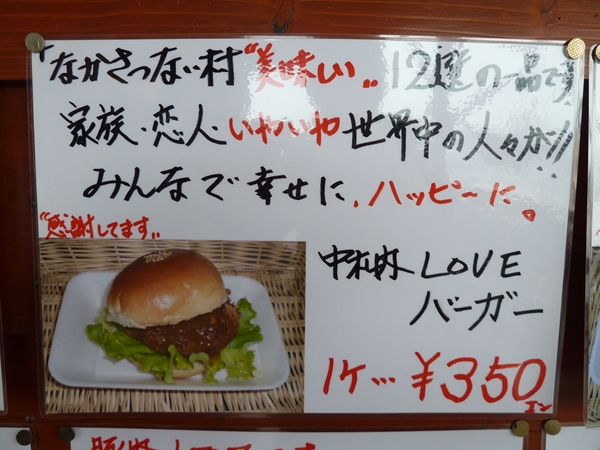 「なかさつない村“美味しい〟12選の一品です
家族・恋人・いやいや世界中の人々が!!
みんなで幸せに、ハッピーに。
“感謝してます〟
中札内LOVE
バーガー
1ケ…¥350
エン